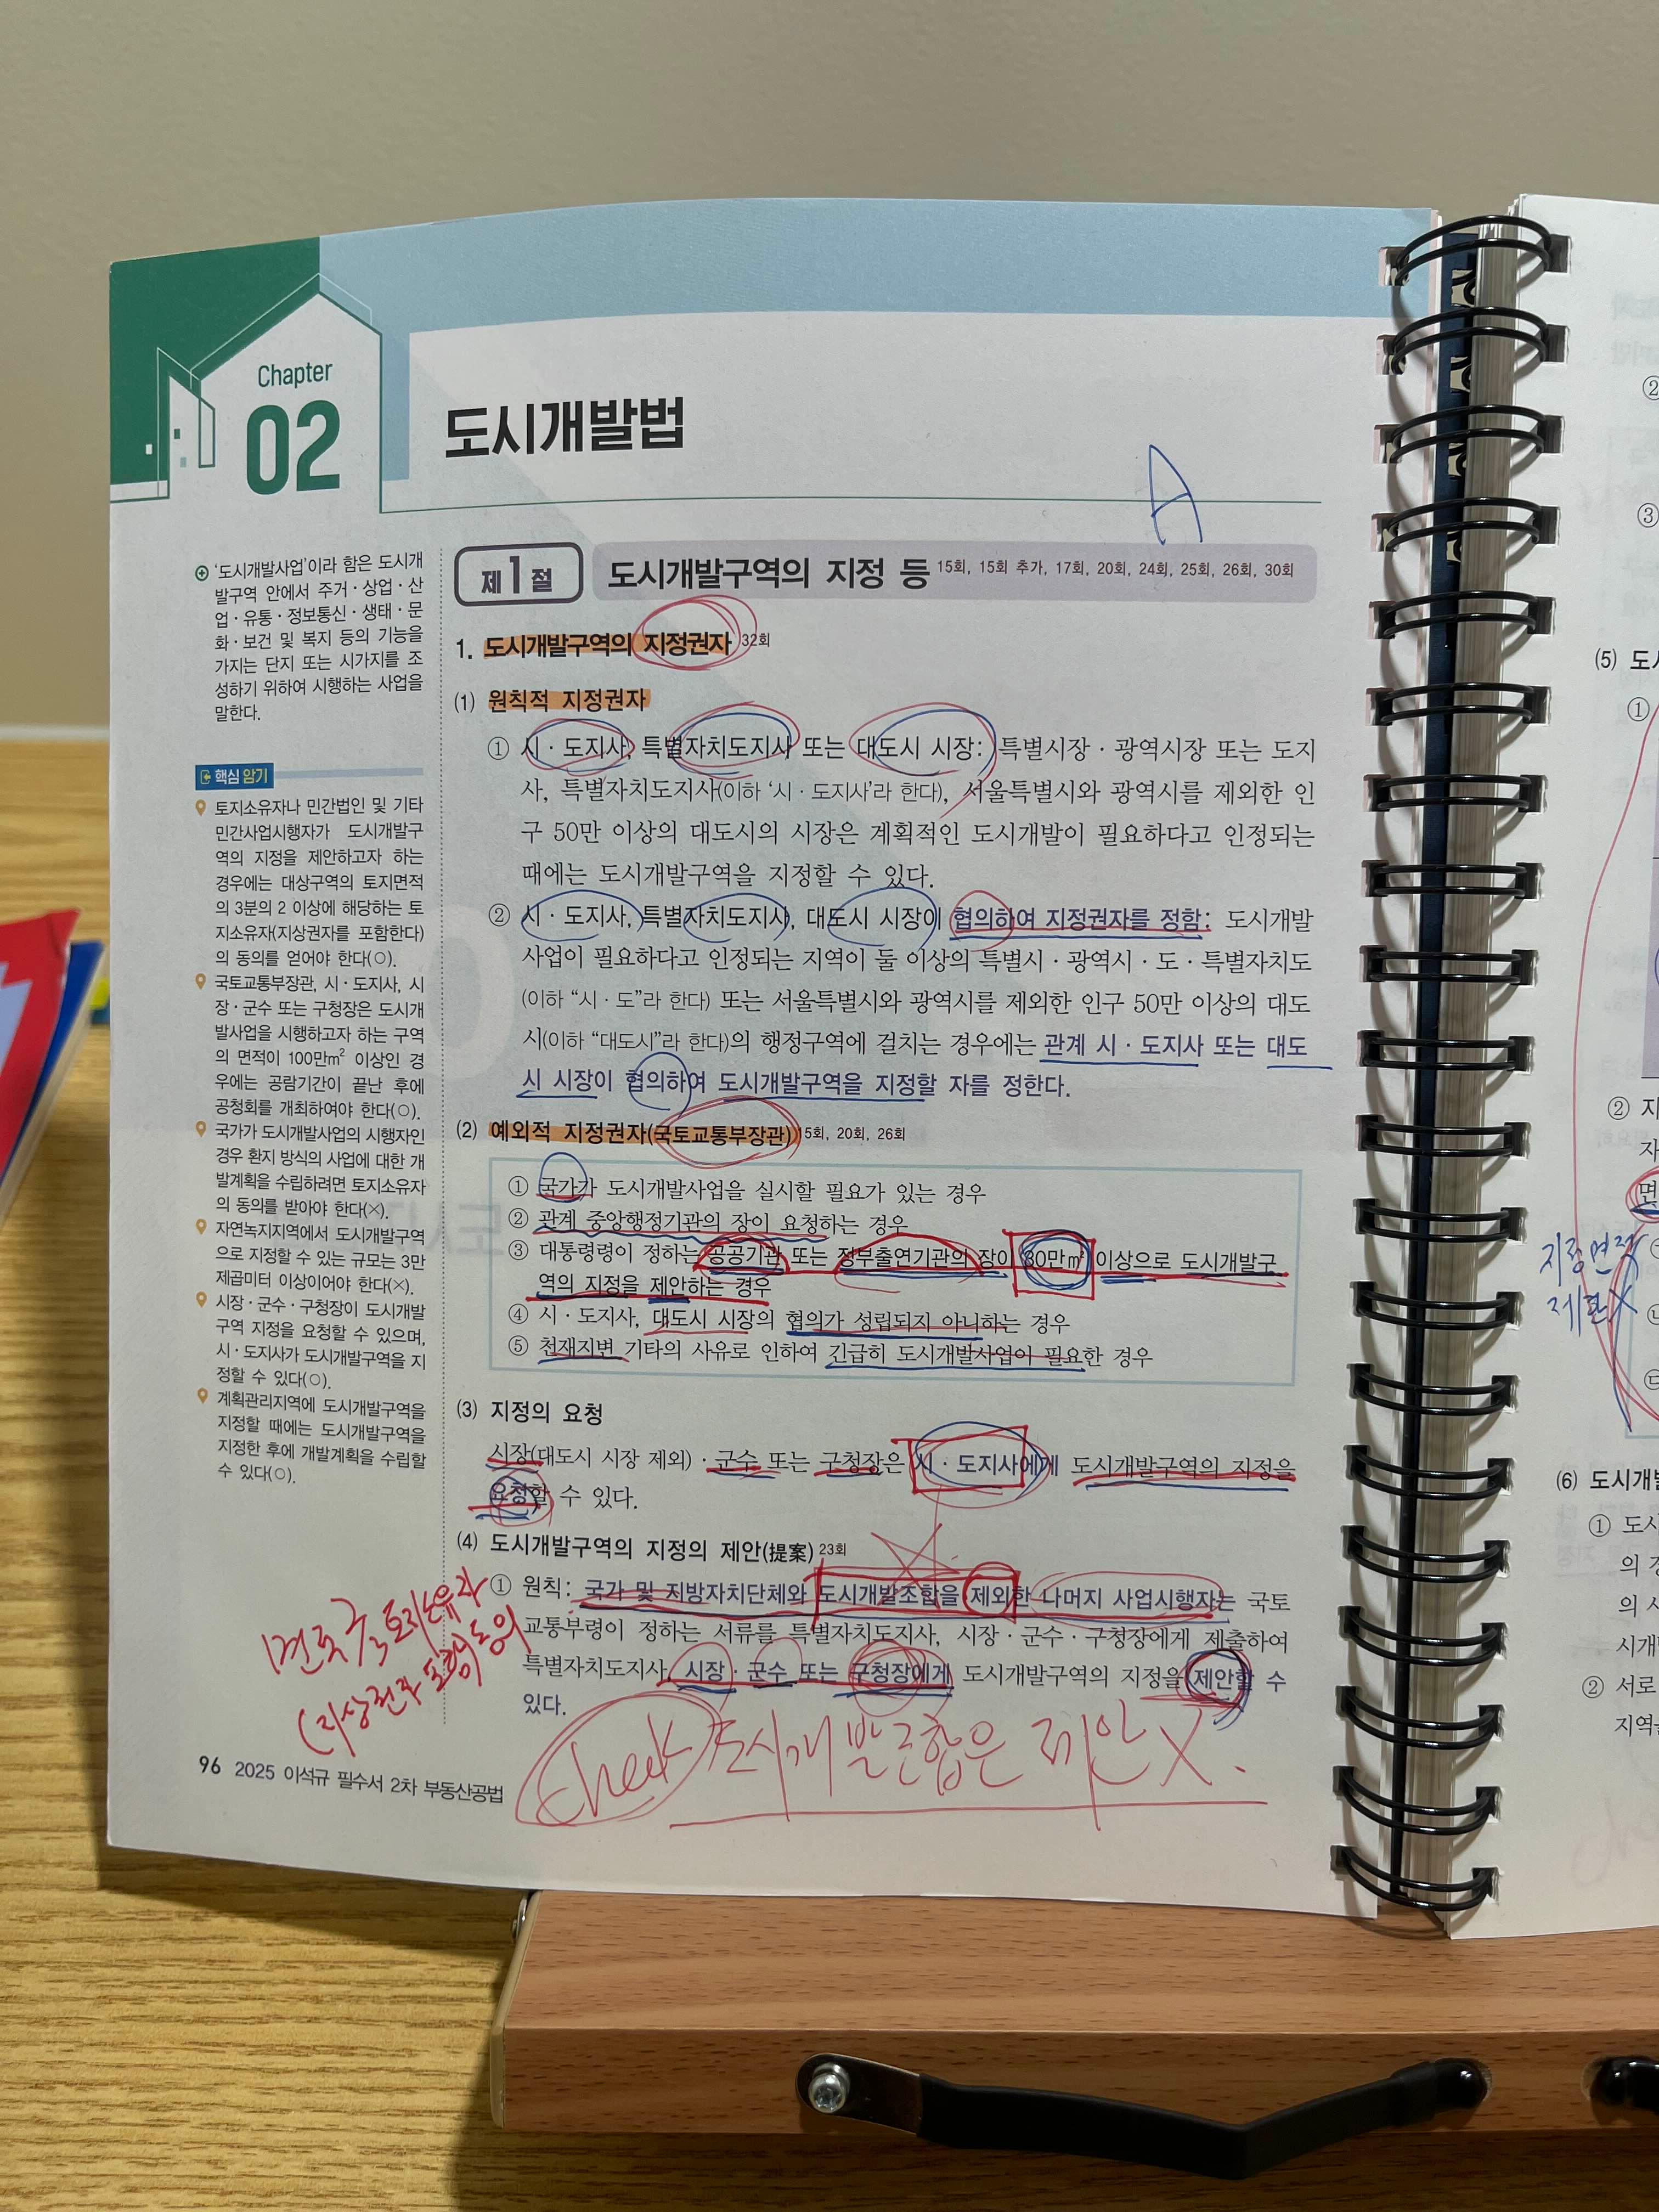 Chapter
02
도시개발법
A
'도시개발사업'이라 함은 도시개
발구역 안에서 주거·상업·산
업·유통·정보통신·생태·문
화·보건 및 복지 등의 기능을
가지는 단지 또는 시가지를 조
성하기 위하여 시행하는 사업을
말한다.
핵심 암기
토지소유자나 민간법인 및 기타
민간사업시행자가 도시개발구
역의 지정을 제안하고자 하는
경우에는 대상구역의 토지면적
의 3분의 2 이상에 해당하는 토
지소유자(지상권자를 포함한다)
의 동의를 얻어야 한다(○).
국토교통부장관, 시·도지사, 시
장·군수 또는 구청장은 도시개
발사업을 시행하고자 하는 구역
의 면적이 100만㎡ 이상인 경
우에는 공람기간이 끝난 후에
공청회를 개최하여야 한다(○).
국가가 도시개발사업의 시행자인
경우 환지 방식의 사업에 대한 개
발계획을 수립하려면 토지소유자
의 동의를 받아야 한다(×).
자연녹지지역에서 도시개발구역
으로 지정할 수 있는 규모는 3만
제곱미터 이상이어야 한다(×).
시장·군수·구청장이 도시개발
구역 지정을 요청할 수 있으며,
시·도지사가 도시개발구역을 지
정할 수 있다(○).
계획관리지역에 도시개발구역을
지정할 때에는 도시개발구역을
지정한 후에 개발계획을 수립할
수 있다(○).
제1절 도시개발구역의 지정 등 15회, 15회 추가, 17회, 20회, 24회, 25회, 26회, 30회
1. 도시개발구역의 지정권자 32회
(1) 원칙적 지정권자
① 시·도지사, 특별자치도지사 또는 대도시 시장: 특별시장·광역시장 또는 도지
사, 특별자치도지사(이하 '시·도지사'라 한다), 서울특별시와 광역시를 제외한 인
구 50만 이상의 대도시의 시장은 계획적인 도시개발이 필요하다고 인정되는
때에는 도시개발구역을 지정할 수 있다.
② 시·도지사, 특별자치도지사, 대도시 시장이 협의하여 지정권자를 정함: 도시개발
사업이 필요하다고 인정되는 지역이 둘 이상의 특별시·광역시·도·특별자치도
(이하 "시·도"라 한다) 또는 서울특별시와 광역시를 제외한 인구 50만 이상의 대도
시(이하 "대도시"라 한다)의 행정구역에 걸치는 경우에는 관계 시·도지사 또는 대도
시 시장이 협의하여 도시개발구역을 지정할 자를 정한다.
(2) 예외적 지정권자(국토교통부장관) 15회, 20회, 26회
① 국가가 도시개발사업을 실시할 필요가 있는 경우
② 관계 중앙행정기관의 장이 요청하는 경우
③ 대통령령이 정하는 공공기관 또는 정부출연기관의 장이 30만㎡ 이상으로 도시개발구
역의 지정을 제안하는 경우
④ 시·도지사, 대도시 시장의 협의가 성립되지 아니하는 경우
⑤ 천재지변 기타의 사유로 인하여 긴급히 도시개발사업이 필요한 경우
(3) 지정의 요청
시장(대도시 시장 제외)·군수 또는 구청장은 시·도지사에게 도시개발구역의 지정을
요청할 수 있다.
(4) 도시개발구역의 지정의 제안(提案) 23회
① 원칙: 국가 및 지방자치단체와 도시개발조합을 제외한 나머지 사업시행자는 국토
교통부령이 정하는 서류를 특별자치도지사, 시장·군수·구청장에게 제출하여
특별자치도지사, 시장·군수 또는 구청장에게 도시개발구역의 지정을 제안할 수
있다.
토지소유자
동의
(지상권자 포함)
check 도시개발조합은 제안X.
96 2025 이석규 필수서 2차 부동산공법
②
③
(5) 도시
①
② 지
자
면
지정면적
제한X
(6) 도시개발
① 도시
의 경
의 시
시개발
② 서로
지역을